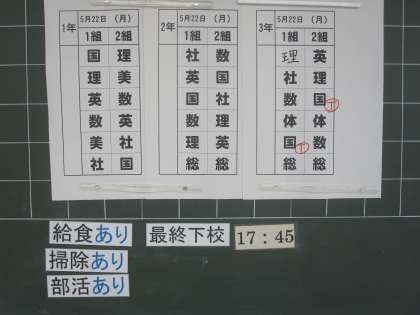 1年 5月22日 (月)
1組 2組
国 理
理 美
英 数
数 英
美 社
社 国
2年 5月22日 (月)
1組 2組
社 数
英 国
国 社
数 理
理 英
総 総
3年 5月22日 (月)
1組 2組
理 英
社 理
数 国 T
体 体
国 T 数
総 総
給食あり 最終下校 17:45
掃除あり
部活あり